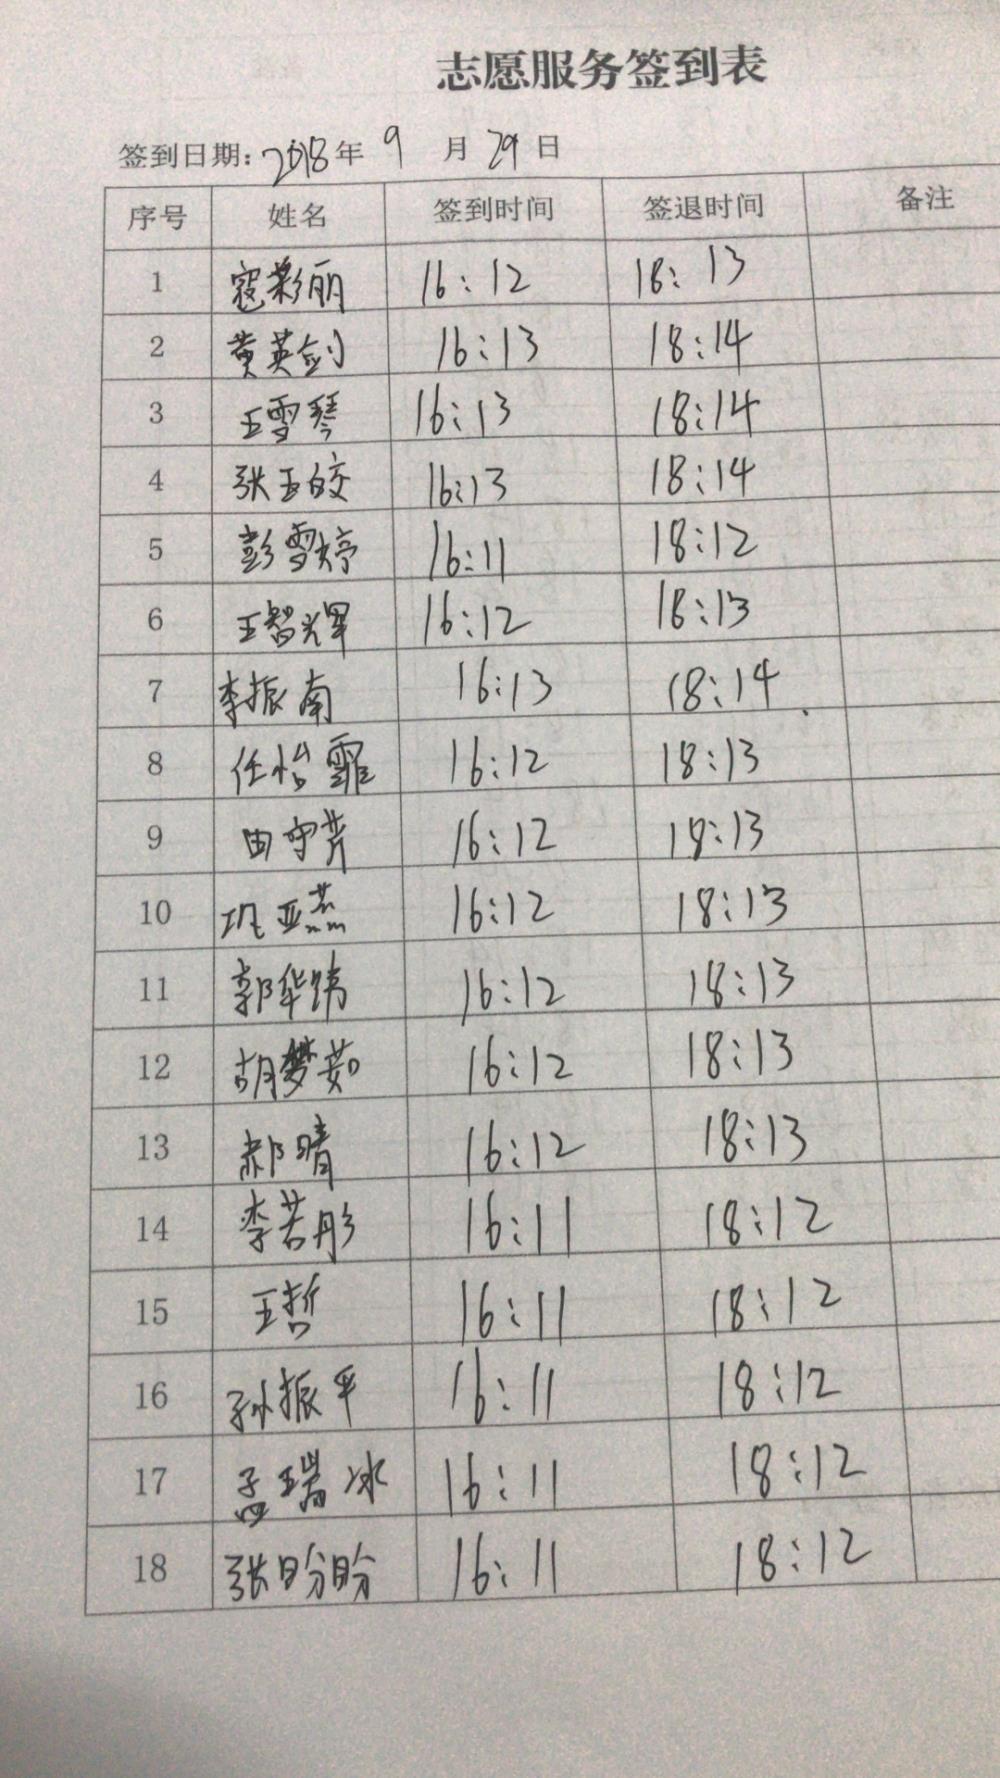 志愿服务签到表
签到日期: 2018年 9 月 29 日
序号 姓名 签到时间 签退时间 备注
1 寇彩丽 16:12 18:13
2 黄英剑 16:13 18:14
3 王雪琴 16:13 18:14
4 张玉皎 16:13 18:14
5 彭雪婷 16:11 18:12
6 王智辉 16:12 18:13
7 李振南 16:13 18:14
8 任怡霏 16:12 18:13
9 田守芳 16:12 18:13
10 巩亚燕 16:12 18:13
11 郭华炜 16:12 18:13
12 胡梦茹 16:12 18:13
13 郝晴 16:12 18:13
14 李若彤 16:11 18:12
15 王哲 16:11 18:12
16 孙振平 16:11 18:12
17 孟瑞冰 16:11 18:12
18 张盼盼 16:11 18:12